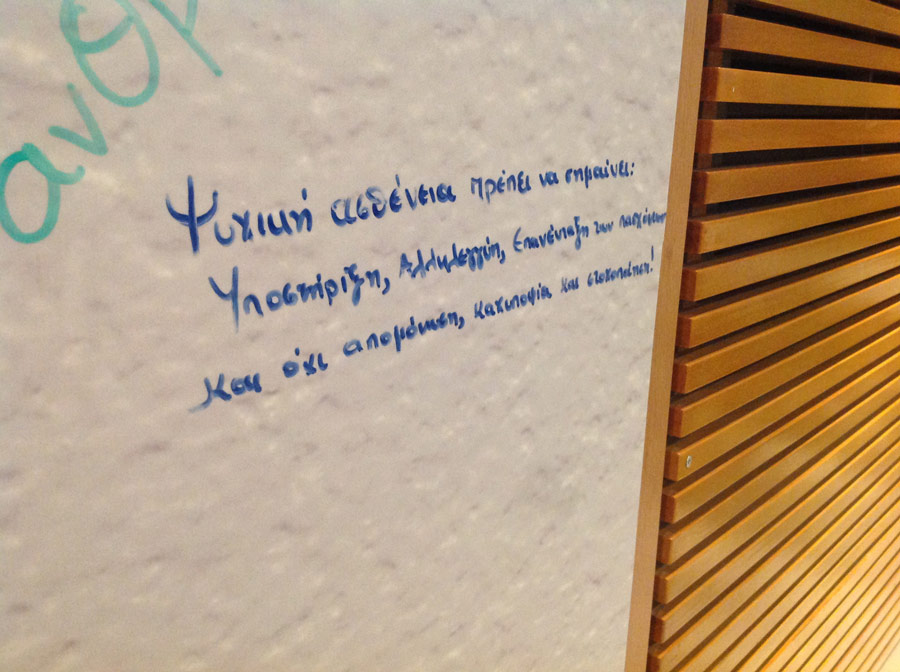 ανθρ
Ψυχική ασθένεια πρέπει να σημαίνει:
Υποστήριξη, Αλληλεγγύη, Επανένταξη των πασχόντων
και όχι απομόνωση, καχυποψία και στοχοποίηση!